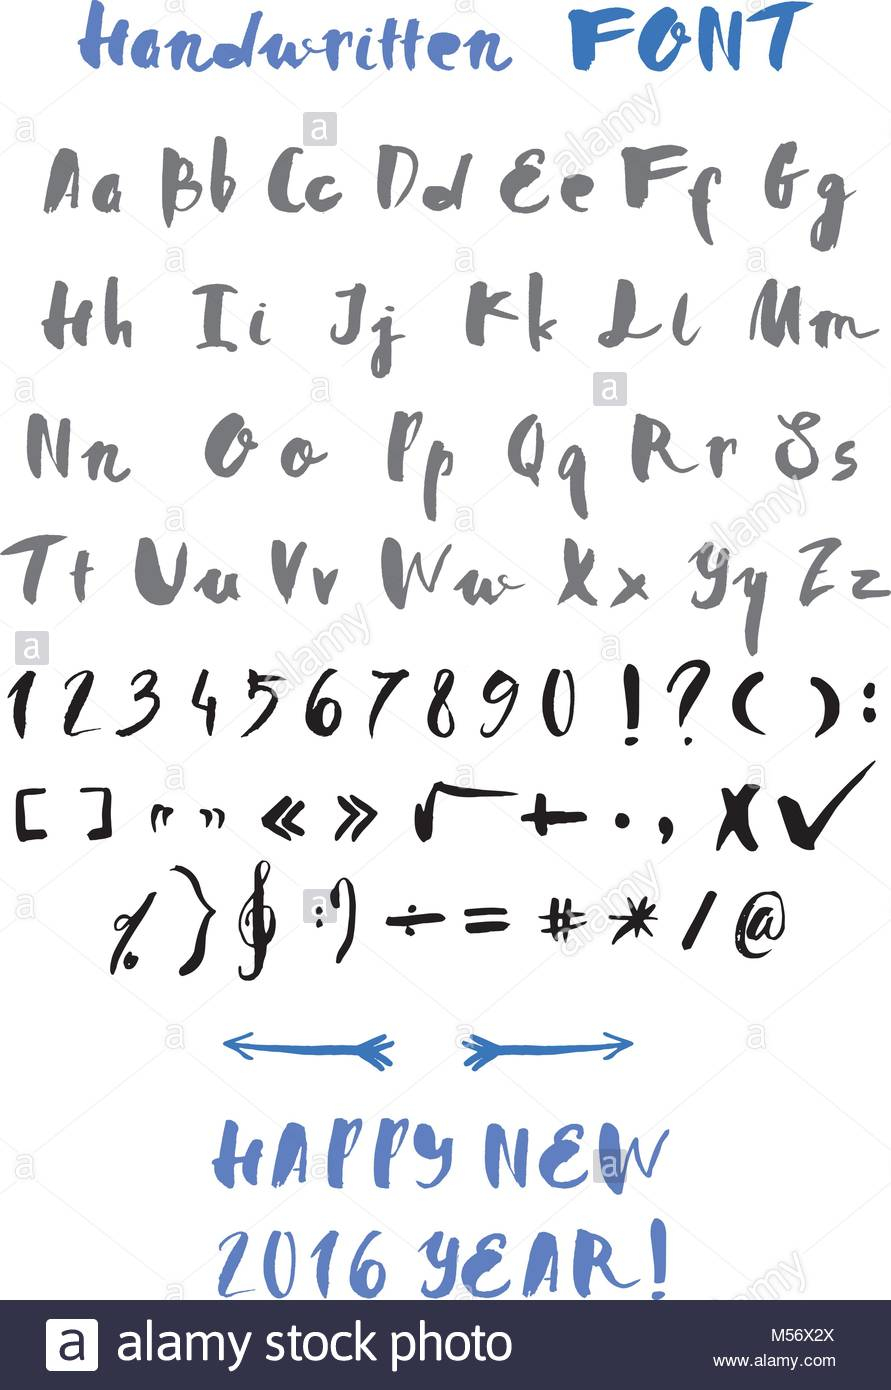 Handwritten FONT
Aa Bb Cc Dd Ee Ff Gg
Hh Ii Jj Kk Ll Mm
Nn Oo Pp Qq Rr Ss
Tt Uu Vv Ww Xx Yy Zz
1 2 3 4 5 6 7 8 9 0 ! ? ( ) :
[ ] „ ” « » √ + . , X ✓
% } 𝄞 :) ÷ = # * / @
HAPPY NEW
2016 YEAR!
a alamy stock photo
M56X2X
www.alamy.com